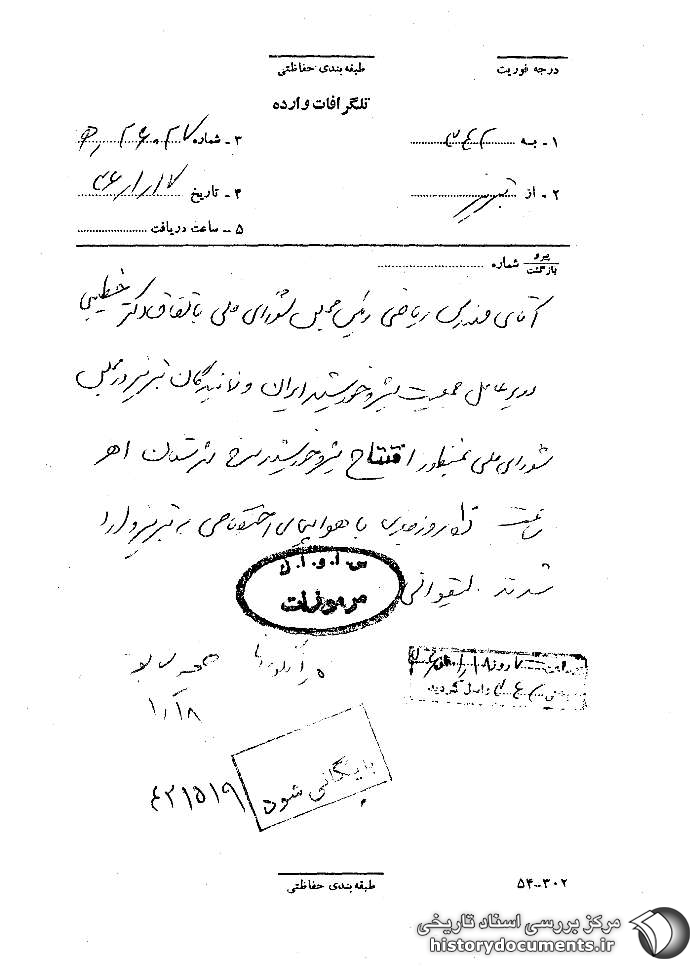 درجه فوریت
طبقه‌بندی حفاظتی
تلگرافات وارده
۱ - به ۳۴۲
۳ - شماره
۲ - از تبریز
۴ - تاریخ ۴۶/۱/۱۷
۵ - ساعت دریافت
پیرو
بازگشت
شماره
آقای مهندس ریاضی رئیس مجلس شورای ملی باتفاق دکتر خطیبی
مدیر عامل جمعیت شیر و خورشید ایران و نمایندگان تبریز در مجلس
شورای ملی بمنظور افتتاح شیر و خورشید سرخ شهرستان اهر
ساعت روز جاری با هواپیمای اختصاصی به تبریز وارد
شدند.
س.ا.و.ا.ک
مرموزات
۱/۱۸
واصل گردید
بایگانی شود
۴۲۱۵۱۹
طبقه‌بندی حفاظتی
۵۴-۳۰۲
مرکز بررسی اسناد تاریخی
historydocuments.ir